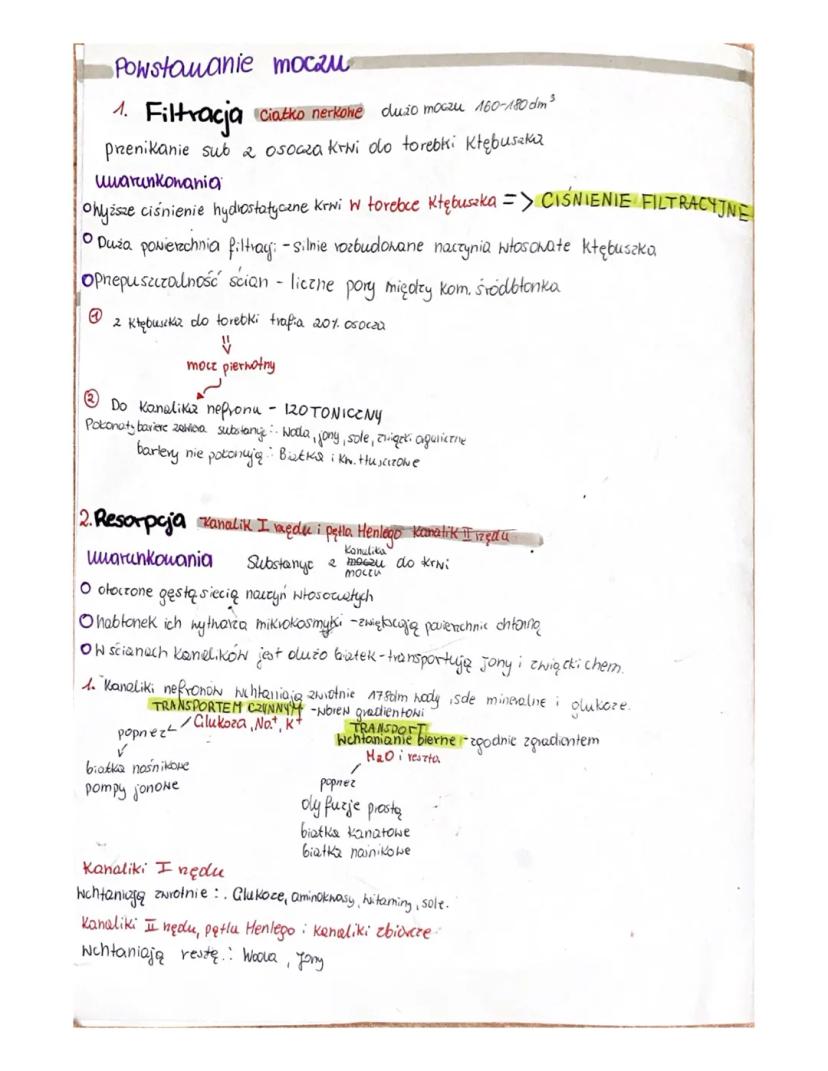 Powstawanie moczu
1. Filtracja ciałko nerkowe dużo moczu 160-180dm³
przenikanie sub z osocza krwi do torebki kłębuszka
uwarunkowania
wyższe ciśnienie hydrostatyczne krwi w torebce kłębuszka => CIŚNIENIE FILTRACYJNE
Duża powierzchnia filtracji - silnie rozbudowane naczynia włosowate kłębuszka
Przepuszczalność ścian - liczne pory między kom. śródbłonka
① z kłębuszka do torebki trafia 20% osocza
mocz pierwotny
② Do kanalika nefronu - IZOTONICZNY
substancje: Woda, jony, sole, związki organiczne
bariery nie pokonują: Białka i kw. tłuszczowe
2. Resorpcja kanalik I rzędu i pętla Henlego kanalik II rzędu
uwarunkowania Substancje z kanalika moczu do krwi
moczu
otoczone gęstą siecią naczyń włosowatych
nabłonek ich wytwarza mikrokosmyki - zwiększają powierzchnie chłonną
W ścianach kanalików jest dużo białek - transportują jony i związki chem.
1. Kanaliki nefronów wchłaniają zwrotnie 178dm wody, sole mineralne i glukoze.
TRANSPORTEM CZYNNYM - wbrew gradientowi
poprzez Glukoza, Na⁺, K⁺
TRANSPORT
Wchłanianie bierne - zgodnie z gradientem
H₂O i reszta
białka nośnikowe
pompy jonowe
poprzez
dyfuzje prostą
białka kanałowe
białka nośnikowe
Kanaliki I rzędu
Wchłaniają zwrotnie: Glukoze, aminokwasy, witaminy, sole.
Kanaliki II rzędu, pętla Henlego i kanaliki zbiorcze
Wchłaniają resztę: Woda, Jony